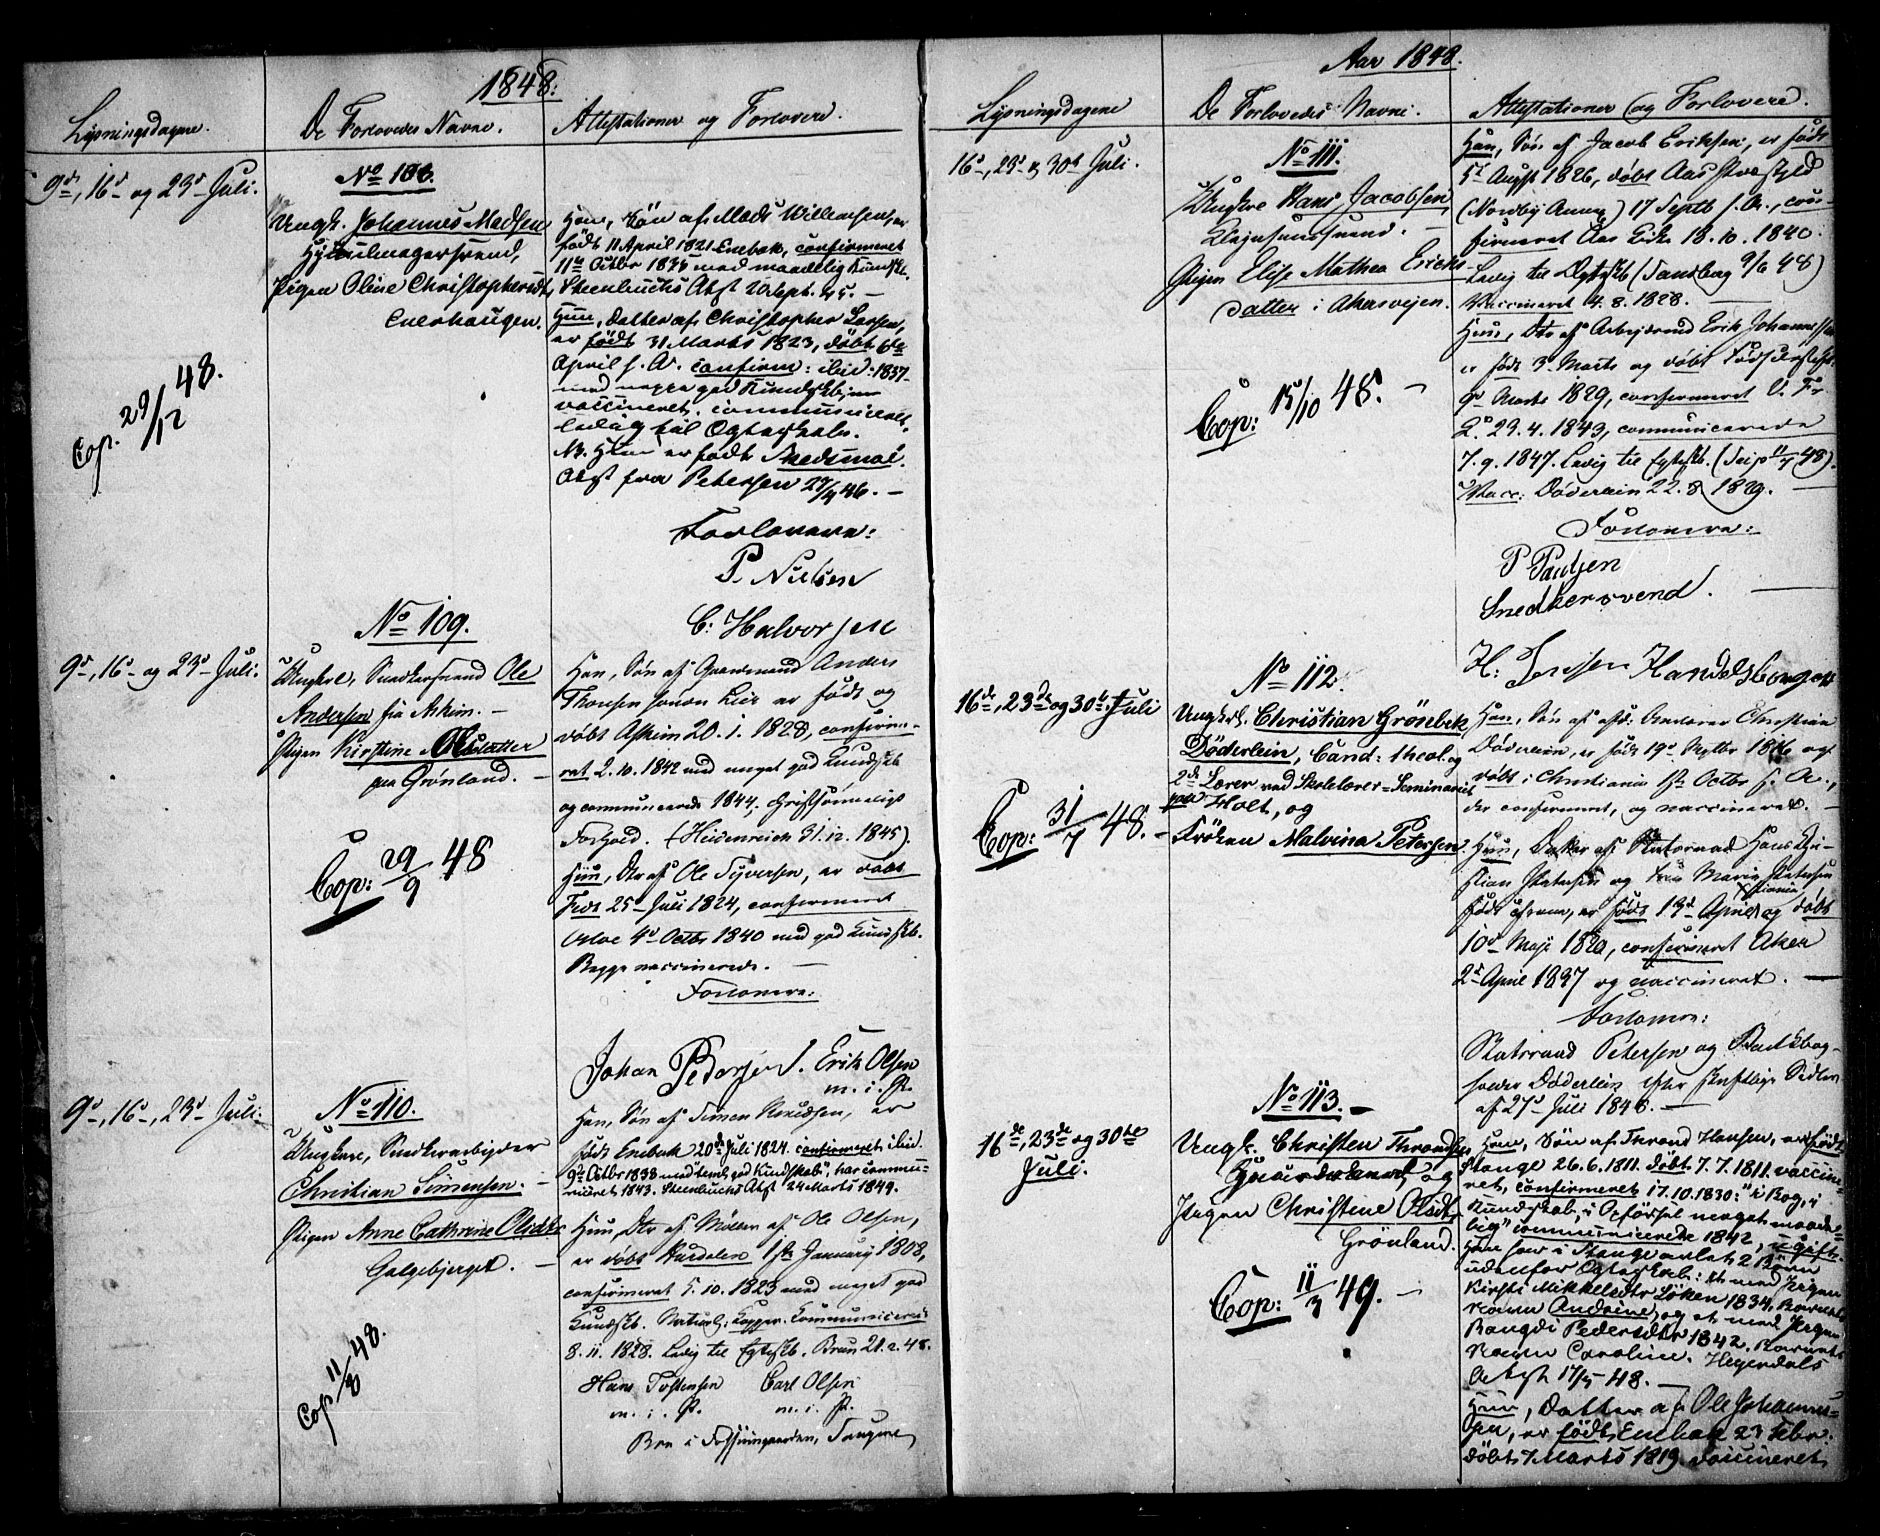 1848.
Lysningsdagene.
De Forlovedes Navne.
Attestationer og Forlovere.
9de, 16d og 23d Juli.
No 108.
Ungk. Johannes Madsen
Pigen Oline Christophersdtr
Enerhaugen.
Cop. 29/12 48.
Han, Søn af Mads Willumsen, er
født 11 April 1821 Enebak, confirmeret
11te Octbr 1835 med maadelig Kundsk.
Steenbuchs Atst 20 Sept. 45. —
Hun, Datter af Christopher Larsen,
er født 31 Marts 1823, døbt 6te
April s. A. confirm: ibid: 1837
med meget god Kundskab,
vaccineret, communiceret,
ledig til Ægteskab.
NB. Hun er født Skedsmoe.
Atst fra Petersen 27/4 46. —
Forlovere:
P. Nielsen
C: Halvorsen
No 109.
9d, 16d og 23d Juli.
Ungkrl, Snedkersvend Ole
Andersen fra Askim. —
Pigen Kirstine Olsdatter
paa Grønland. —
Cop: 29/9 48
Han, Søn af Gaardmand Anders
Thonsen er født og
døbt Askim 20. 1. 1828, confirme-
ret 2. 10. 1842 med meget god Kundskb
og communicerede 1844, Christsømmeligt
Forhold. (Heidenreich 31. 12. 1845).
Hun, Dtr af Ole Syversen, er døbt
25de Juli 1824, confirmeret
4d Octbr 1840 med god Kundskb.
Begge vaccinerede. —
Forlovere:
Johan Pedersen. Erik Olsen
m. i. P.
9d, 16d, 23d Juli.
No 110.
Ungkar, Snedkerarbejder
Christian Simensen. —
Pigen Anne Cathrine Olsdtr
Galgebjerget. —
Cop 11/8 48.
Han, Søn af Simen Knudsen, er
født Enebak 20de Juli 1824. confirmeret ibid.
9de Octbr 1838 med "teml. god Kundskab", har commu-
niceret 1843. Steenbuchs Atst 24 Marts 1849.
Hun, Dtr af Møller af Ole Olsen,
er døbt Hurdalen 1ste January 1808,
confirmeret 5. 10. 1823 med meget god
Kundskb. Naturl: Kopper. Communicerede
8. 11. 1828. Ledig til Egteskb. Brun 21. 2. 48.
Hans Tostensen Carl Olsen
m. i. P. m. i. P.
Boe i
Aar 1848.
Lysningsdagene
De Forlovedes Navne.
Attestationer og Forlovere.
16d, 23d og 30te Juli.
No 111.
Ungkrl Hans Jacobsen
Pigen Elise Mathea Eriks
datter i Akersvejen.
Cop: 15/10 48. —
Han, Søn af Jacob Eriksen, er født
5t August 1826, døbt Aas Præstgjeld
(Nordby Annex) 17 Septb s. A., con-
firmeret Aas Kirke 18. 10. 1840.
Ledig til Egteskb (Tandberg 9/6 48)
Vaccineret 4. 8. 1828. —
Hun, Dtr af Arbejdsmd Erik Johannessen
er født 3 Marts og døbt
9d Marts 1829, confirmeret V. Fr.
K. 23. 4. 1843, communicerede
7. 9. 1847. Ledig til Egteskb. (48).
Vacc: Døderlein 22. 8. 1829. —
Forlovere:
P Paulsen
Snedkersvend. —
H: Jenssen Handelsborger
16de, 23de og 30te Juli
No 112.
Ungkrl. Christian Grönbek
Døderlein, Cand: theol. og
2de Lærer ved Skolelærer-Seminariet
paa Holt, og
Frøken Malvina Petersen.
Cop: 31/7 48. —
Han, Søn af afd. Christian
Døderlein, er født 19de Septbr og
døbt i Christiania 1ste Octbr s. A.,
der confirmeret, og vaccineret. —
Hun, Datter af Statsraad Hans Chri-
stian Petersen og Frue Maria Petersen
født er født 13de April og døbt
10de Maji 1820, confirmeret Aker
2d April 1837 og vaccineret. —
Forlovere:
Statsraad Petersen og Bankbog-
holder Døderlein efter skriftlige Sedler
af 27de Juli 1848. —
16de, 23de og 30te
Juli.
No 113. —
Ungk. Christen Throndsen
og
Pigen Christine Olsdtr
Grönland.
Cop: 11/3 49. —
Han, Søn af Thrond Hansen, er født
Stange 26. 6. 1811. døbt 7. 7. 1811. vaccine-
ret, confirmeret 17. 10. 1830: "i Bog, i
Kundskab, i Opførsel meget maade-
lig" communicerede 1842, ugift.
Han har i Stange avlet 2 Børn
udenfor Ægteskab: et med Pigen
Kirsti Mikkelsdtr Løken 1834, Barnets
Navn Andrine, og et med Pigen
Rangdi Pedersdtr 1842. Barnets
Navn Caroline. Hejerdals
Attest 17/5 48. —
Hun, Datter af Ole Johannes-
sen, er født Enebak 23 Febr.
døbt 7 Marts 1819. Vaccineret,